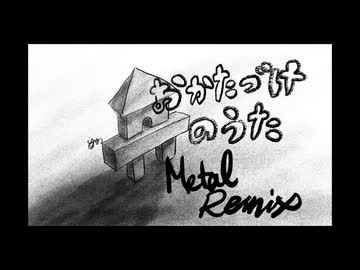 おかたづけ
のうた
Metal
Remix